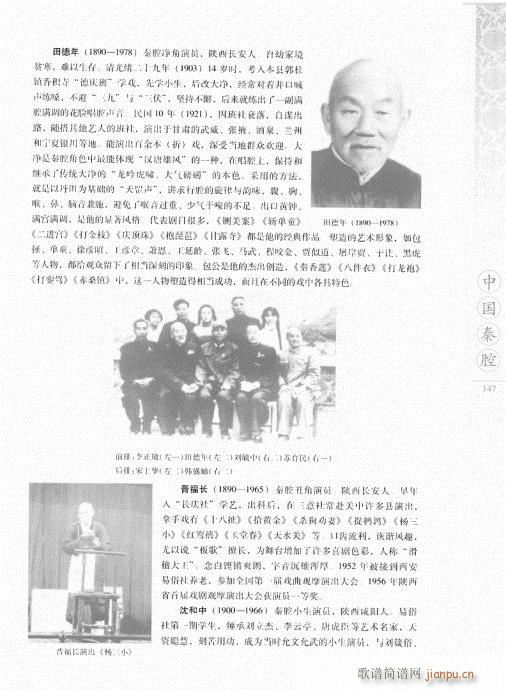 田德年（1890—1978）秦腔净角演员，陕西长安人。自幼家境
贫寒，难以生存。清光绪二十九年（1903）14岁时，考入本县郭杜
镇香积寺“德庆班”学戏，先学小生，后改大净，经常对着井口喊
声练嗓，不避“三九”与“三伏”，坚持不懈，后来就练出了一副满
腔满调的花脸唱腔声音。民国10年（1921），因班社衰落，自谋出
路，随搭其他艺人的班社，演出于甘肃的武威、张掖、酒泉、兰州
和宁夏银川等地。能演出百余本（折）戏，深受当地群众欢迎。大
净是秦腔角色中最能体现“汉唐雄风”的一种，在唱腔上，保持和
继承了传统大净的“龙吟虎啸、大气磅礴”的本色。采用的方法，
就是以丹田为基础的“天罡声”，讲求行腔的旋律与韵味，腹、胸、
喉、鼻、脑音兼施，避免了喉音过重、少气干嚎的不足。出口黄钟、
满宫满调，是他的显著风格。代表剧目很多，《铡美案》《斩单童》
《二进宫》《打金枝》《庆顶珠》《抱琵琶》《甘露寺》都是他的经典作品。塑造的艺术形象，如包
拯、单童、徐彦昭、王彦章、萧恩、王延龄、张飞、马武、程咬金、贾似道、屠岸贾、于让、黑虎
等人物，都给观众留下了相当深刻的印象。包公是他的杰出创造，《秦香莲》《八件衣》《打龙袍》
《打銮驾》《赤桑镇》中，这一人物塑造得相当成功，而且在不同的戏中各具特色。
田德年（1890—1978）
中国秦腔
147
前排：李正敏（左一）田德年（左二）刘毓中（右二）苏育民（右一）
后排：宋上华（左二）韩盛岫（右二）
晋福长（1890—1965）秦腔丑角演员。陕西长安人。早年
入“长庆社”学艺，出科后，在三意社常赴关中许多县演出，
拿手戏有《十八扯》《拾黄金》《杀狗劝妻》《提鹌鹑》《杨三
小》《红鸾禧》《玉堂春》《天水关》等。口齿流利，诙谐风趣，
尤以说“板歌”擅长，为舞台增加了许多喜剧色彩，人称“滑
稽大王”。念白铿锵爽朗，字音沉雄浑厚。1952年被接到西安
易俗社养老，参加全国第一届戏曲观摩演出大会。1956年陕西
省首届戏剧观摩演出大会获演员一等奖。
晋福长演出《杨三小》
沈和中（1900—1966）秦腔小生演员，陕西咸阳人。易俗
社第一期学生，师承刘立杰、李云亭、唐虎臣等艺术名家，天
资聪慧，刻苦用功，成为当时允文允武的小生演员，与刘箴俗、
歌谱简谱网
jianpu.cn